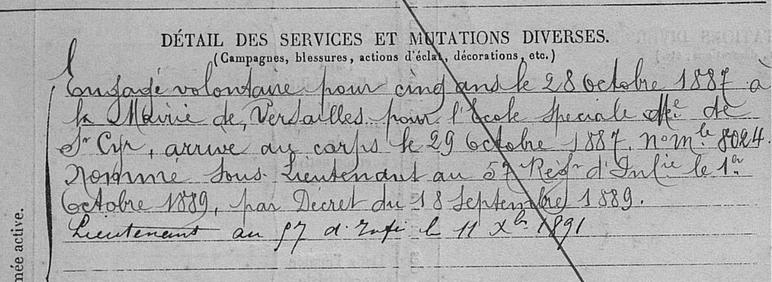 DÉTAIL DES SERVICES ET MUTATIONS DIVERSES.
(Campagnes, blessures, actions d'éclat, décorations, etc.)
Engagé volontaire pour cinq ans le 28 Octobre 1887 à
la Mairie de Versailles pour l'Ecole Speciale Mre de
St Cyr, arrivé au corps le 29 Octobre 1887. No Mle 8024.
Nommé Sous Lieutenant au 57 Régt d'Infie le 1er
Octobre 1889, par Décret du 18 Septembre 1889.
Lieutenant au 97 d'Infie le 11 Xbre 1891
mée active.